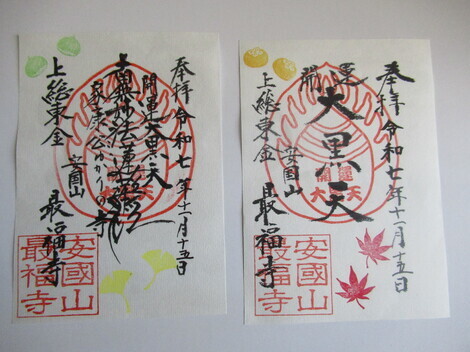 奉拝 令和七年十一月十五日
開運大黒天
南無妙法蓮華経
安國山
上総東金 最福寺
安國山
最福寺
奉拝 令和七年十一月十五日
開運
大黒天
開運
大黒天
安國山
上総東金 最福寺
安國山
最福寺